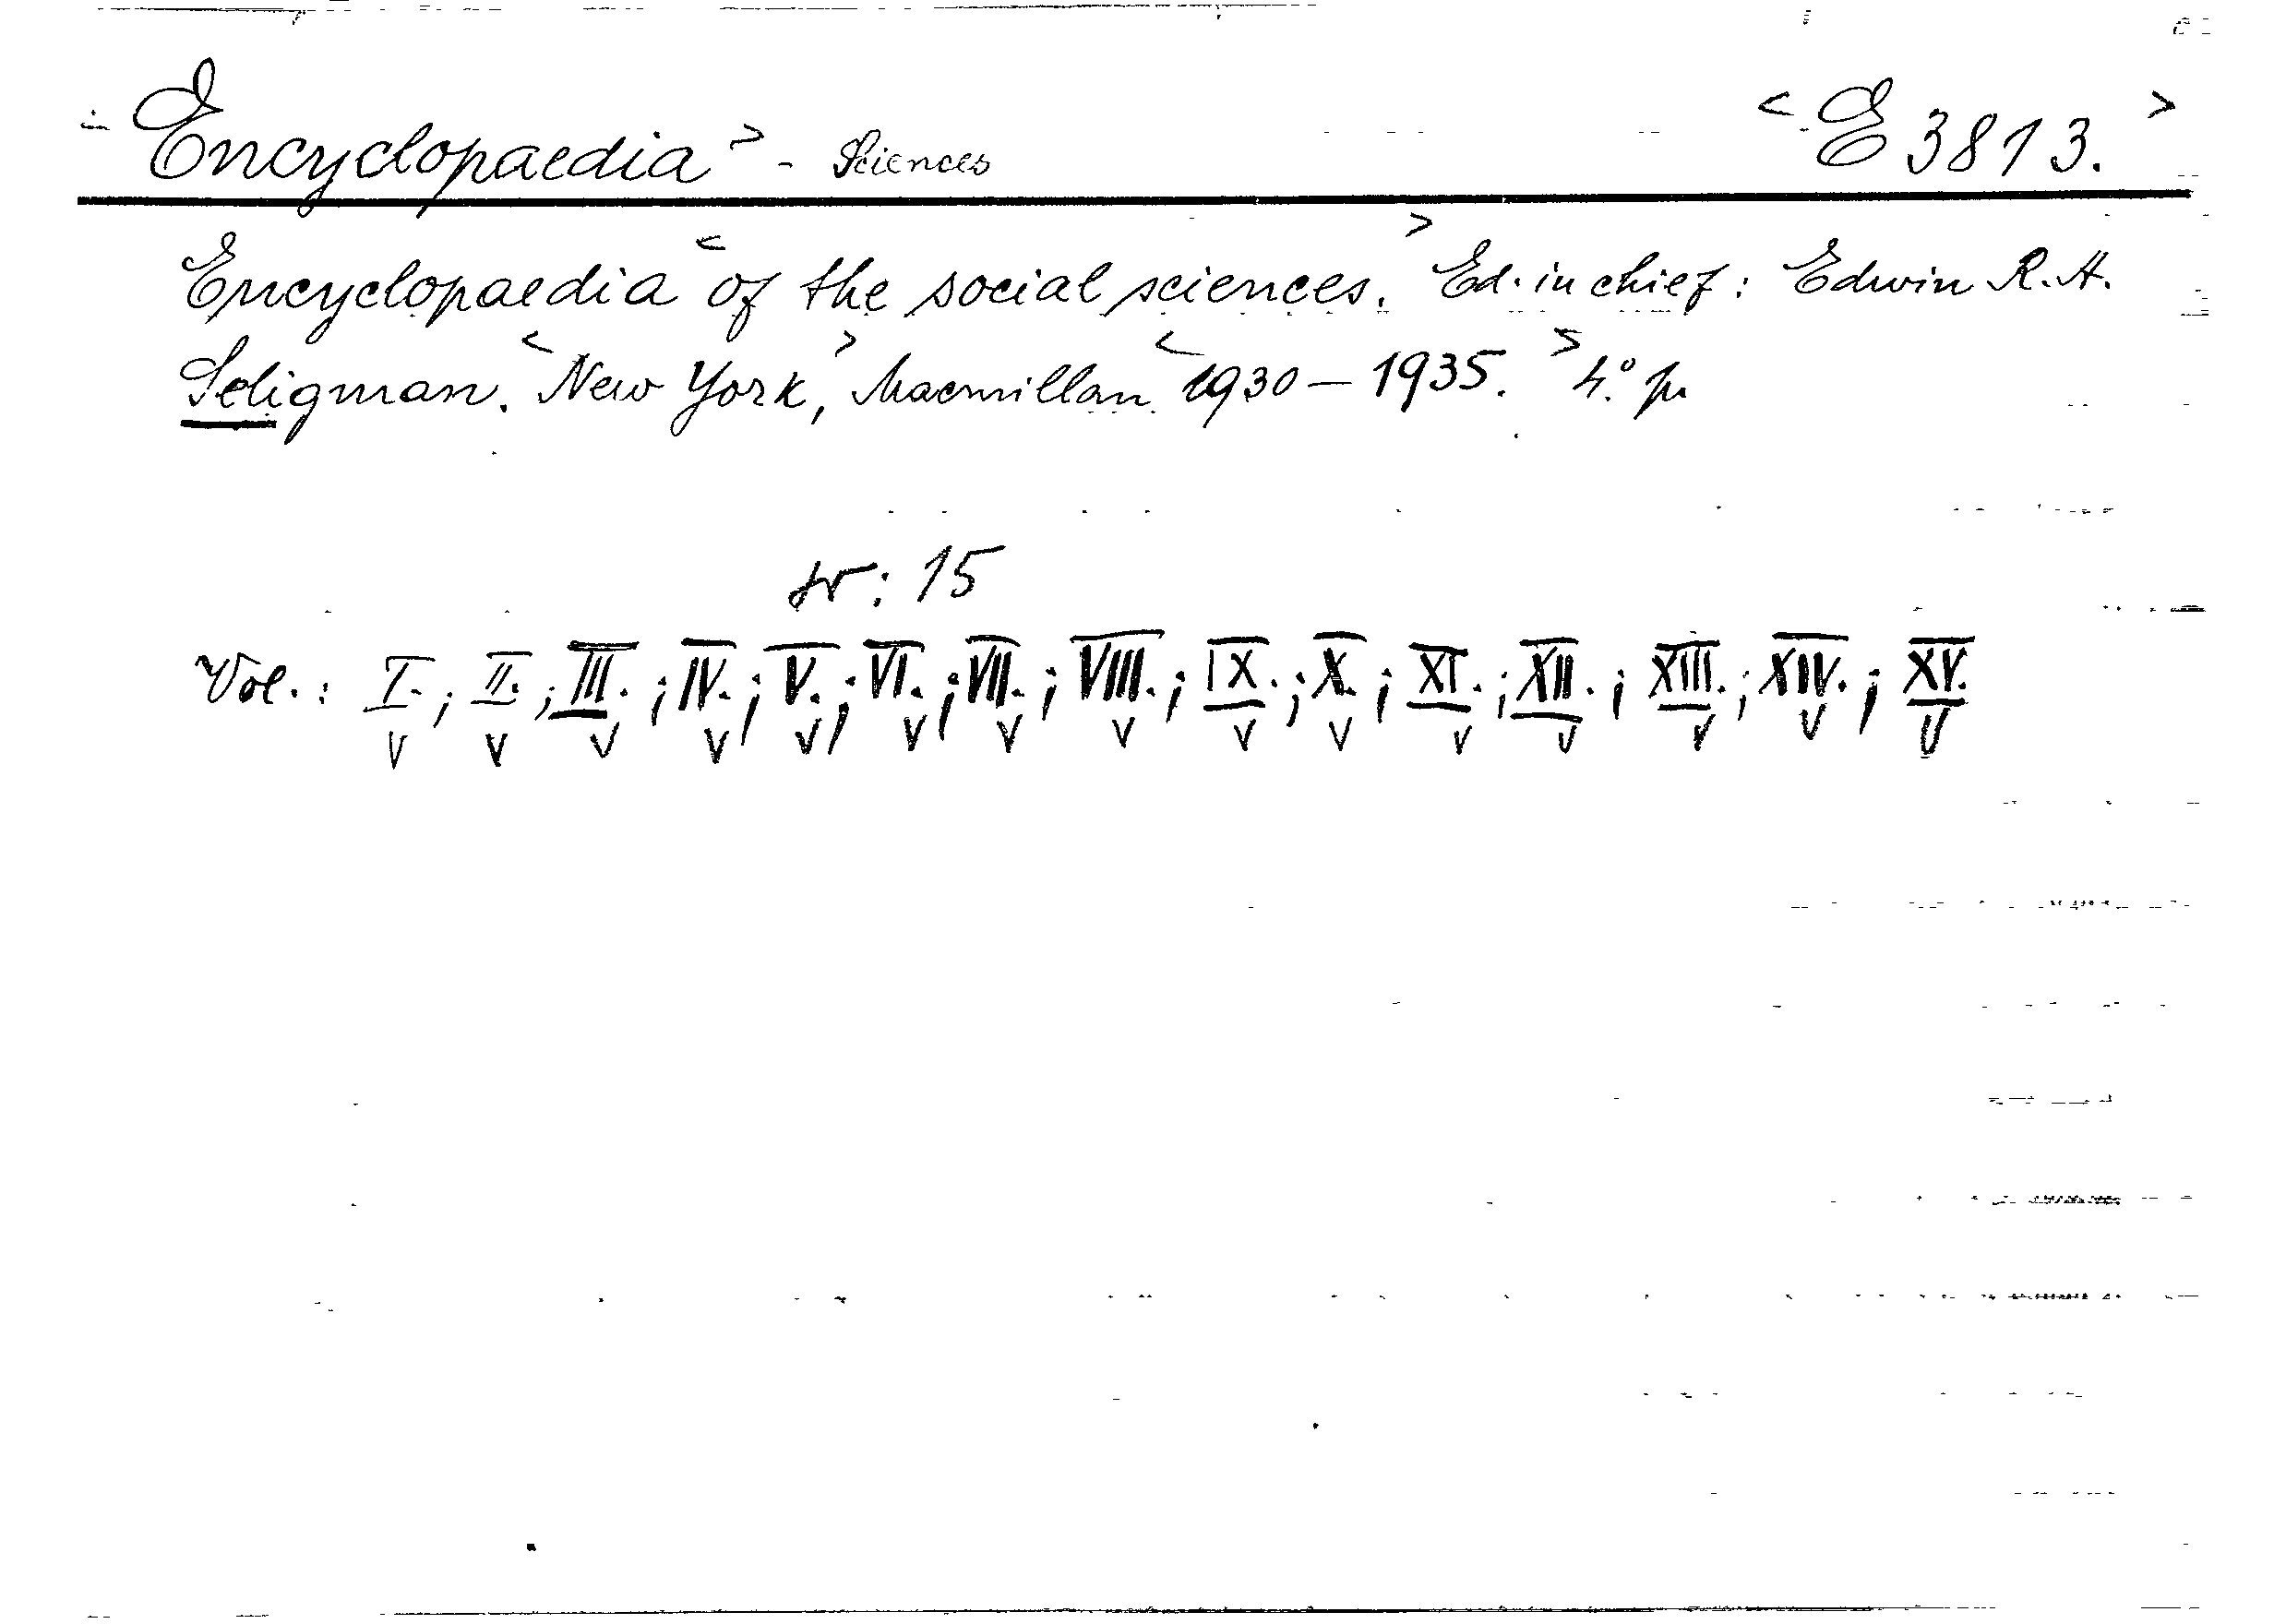 Encyclopaedia> - Sciences <E 3813.>
Encyclopaedia <of the social sciences.> Ed. in chief: Edwin R. A.
Seligman. <New York,> Macmillan <1930 — 1935.> 4.°
: 15
Vol.: I.; II.; III.; IV.; V.; VI.; VII.; VIII.; IX.; X.; XI.; XII.; XIII.; XIV.; XV.
v v v v v v v v v v v v v v v